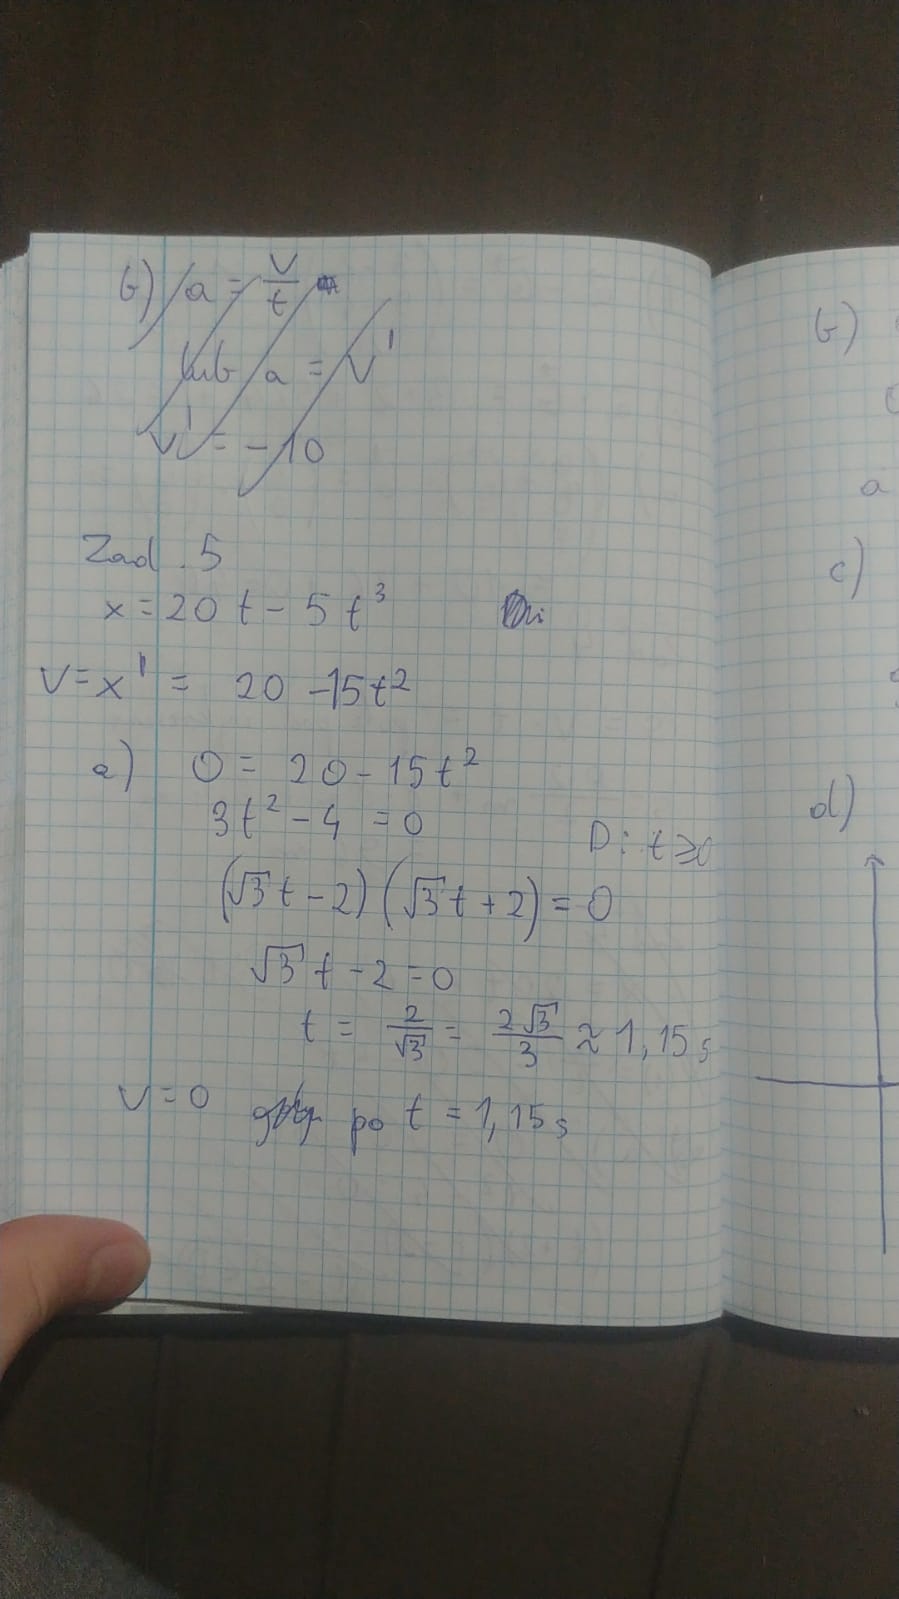 b) a = v/t
lub a = v'
v' = -10
Zad. 5
x = 20t - 5t³
v = x' = 20 - 15t²
a) 0 = 20 - 15t²
3t² - 4 = 0
D: t ≥ 0
(√3t - 2)(√3t + 2) = 0
√3t - 2 = 0
t = 2/√3 = 2√3/3 ≈ 1,15 s
v = 0 po t = 1,15 s
b)
a
c)
d)